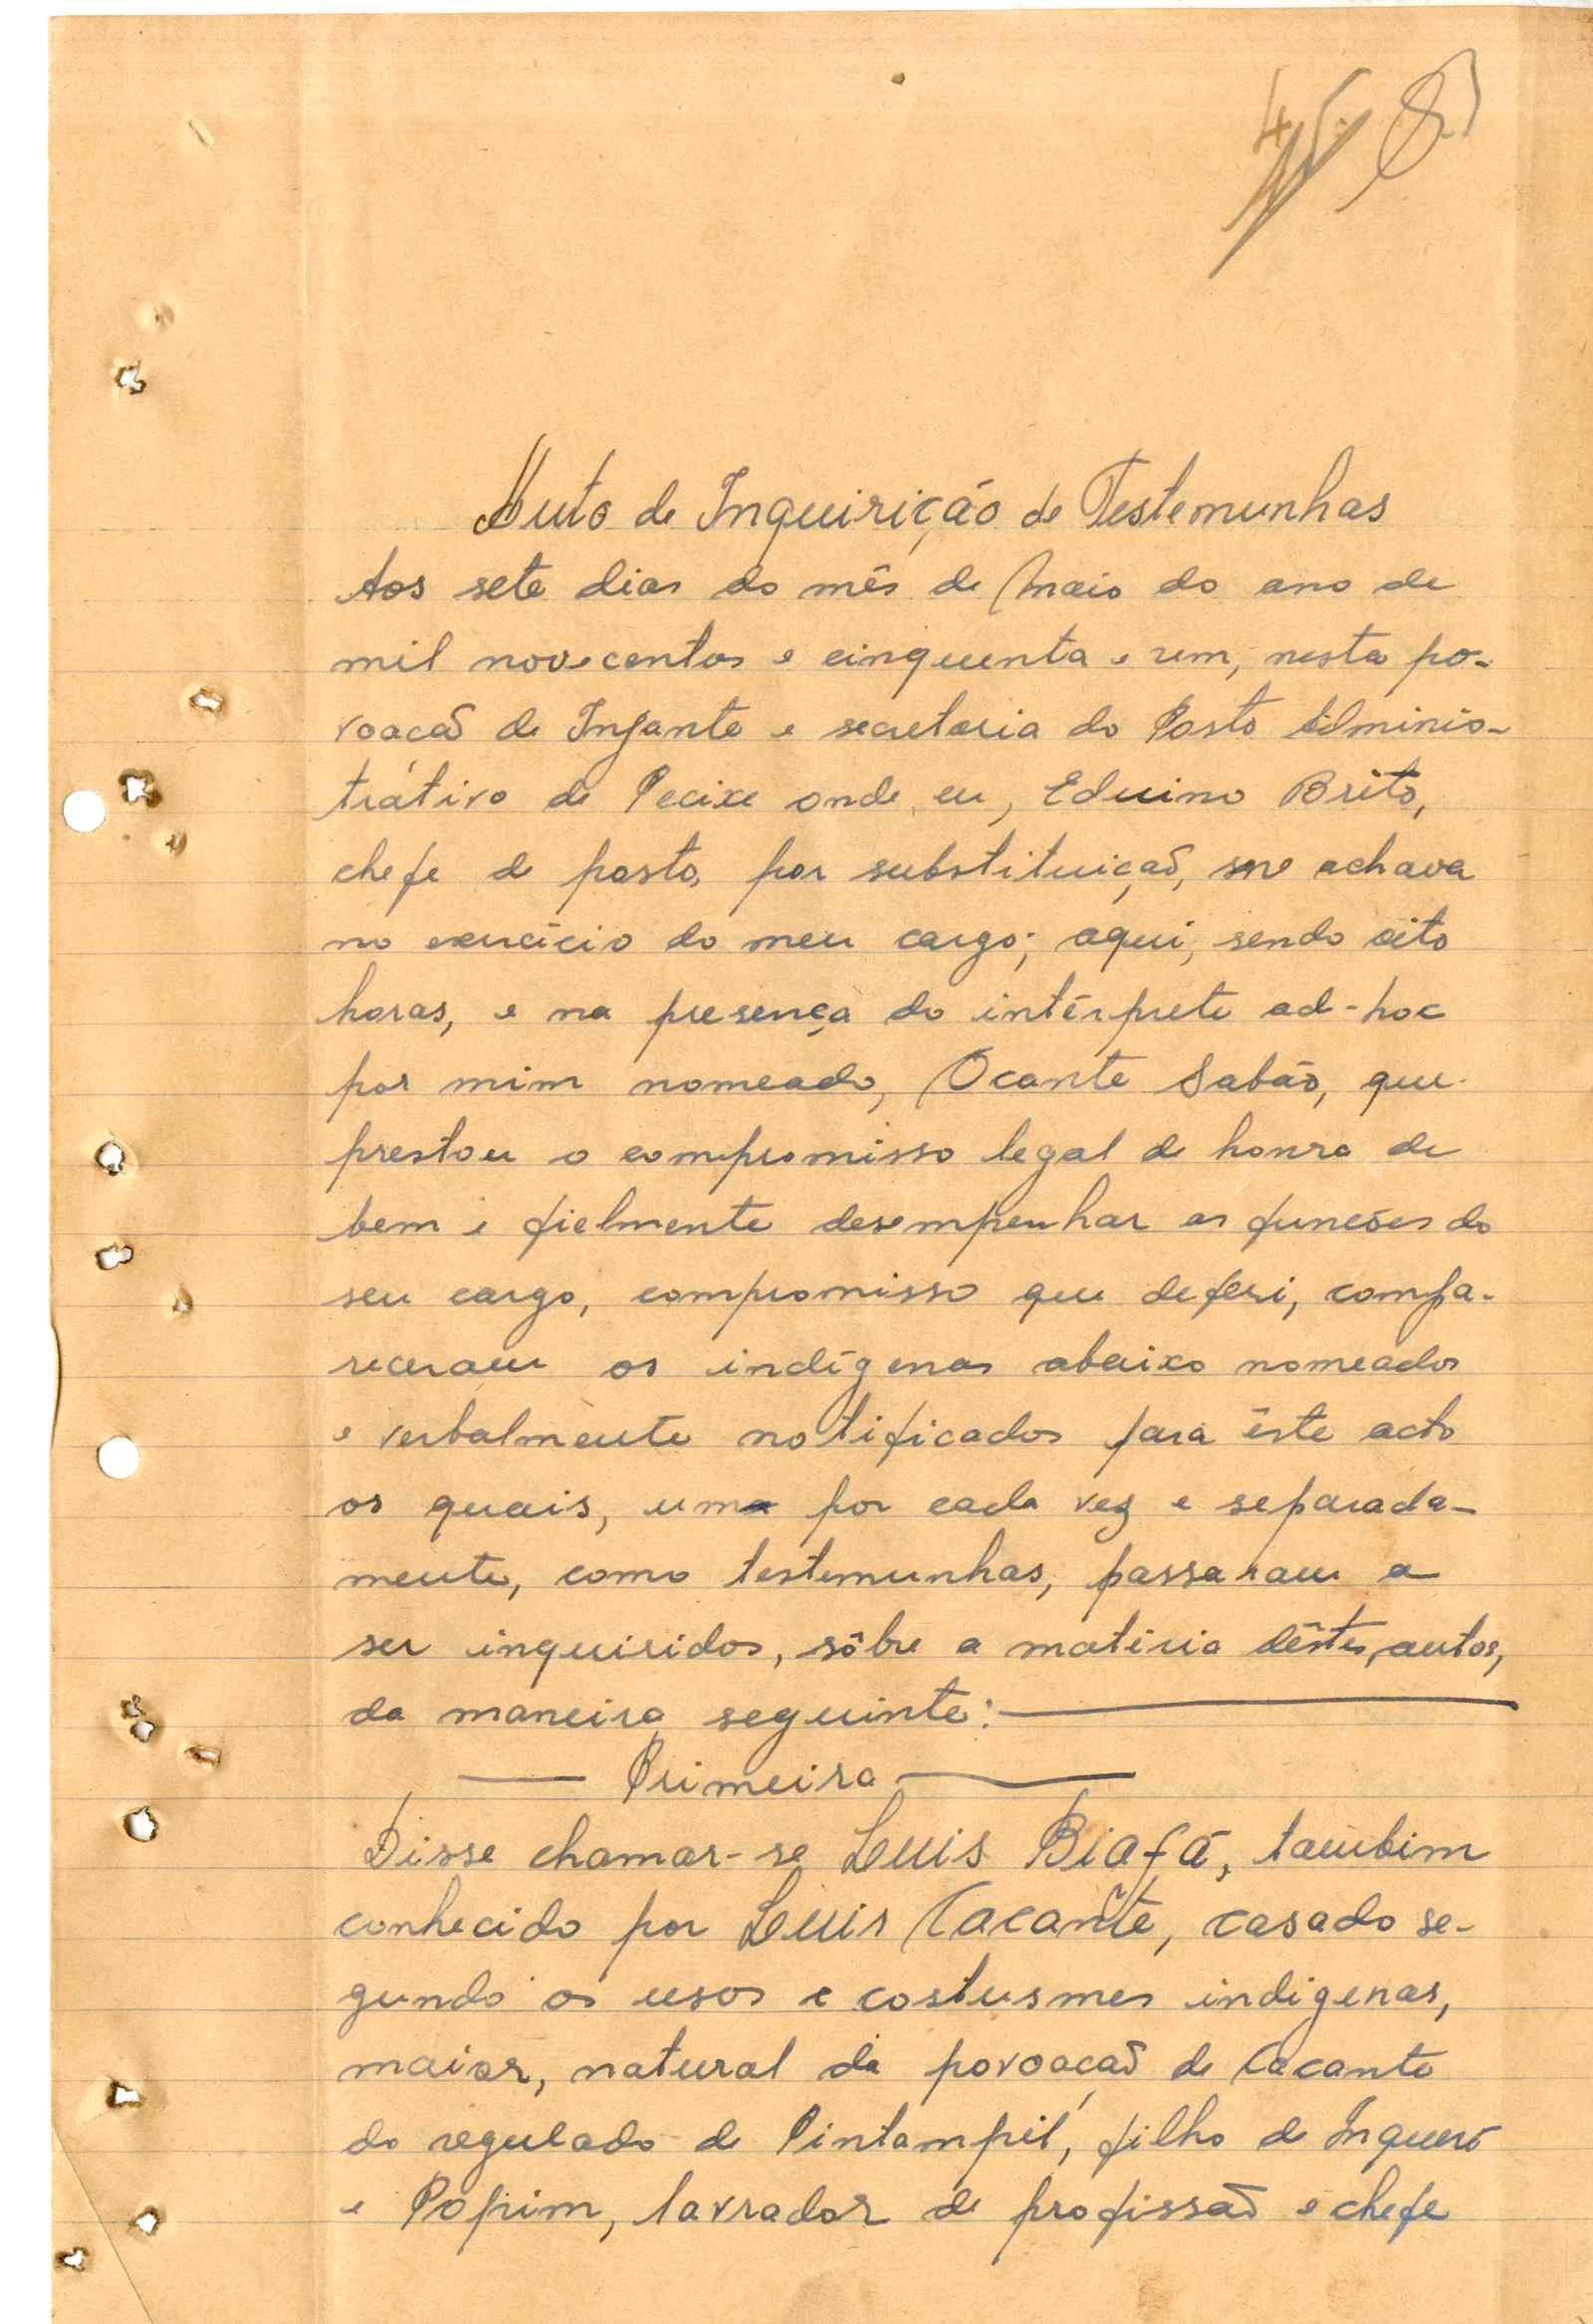 Auto de Inquirição de Testemunhas
Aos sete dias do mês de Maio do ano de
mil novecentos e cinquenta e um, nesta po-
voação de Infante e secretaria do Posto Adminis-
trativo de Pecixe onde, eu, Eduino Brito,
chefe de posto, por substituição, me achava
no exercício do meu cargo; aqui, sendo oito
horas, e na presença do intérprete ad-hoc
por mim nomeado, Ocante Sabão, que
prestou o compromisso legal de honra de
bem e fielmente desempenhar as funções do
seu cargo, compromisso que deferi, compa-
receram os indígenas abaixo nomeados
e verbalmente notificados para êste acto
os quais, um por cada vez e separada-
mente, como testemunhas, passaram a
ser inquiridos, sôbre a matéria dêstes autos,
da maneira seguinte:
Primeira
Disse chamar-se Luis Biafá, também
conhecido por Luis Cacante, casado se-
gundo os usos e costusmes indigenas,
maior, natural da povoação de Cacante
do regulado de Pintampil, filho de
e Popim, lavrador de profissão e chefe